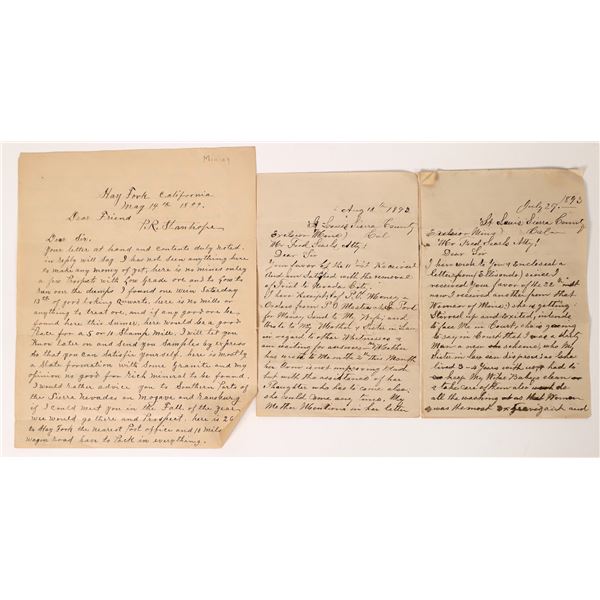 Mining
Hay Fork California
May 14th 1899.
Dear Friend
P.R. Stanhope
Dear Sir.
Your letter at hand and Contents duly noted.
in reply will say I has not seen anything here
to make any money of yet, here is no mines only
a few Prospets with Low grade ore and to Low to
run on the dumps I found one Wein Saturday
13th of good loking Quarts, here is no mills or
anything to treat ore, and if any good ore be
found here this Sumer, here would be a good
Place for a 5 or 10 Stamp Mill. I will let you
Know later on and send you Samples by express
so that you can Satisfie yourself. here is mostly
a Slate formation with Some Granite and my
opinion no good for Rich Mineral to be found.
I would rather advice you to Southern Parts of
the Sierra Nevadas on Mogave and Ransburg
if I could meet you in the Fall of the year
we would go there and Prospect; here is 26
to Hay Fork the nearest Post office and 10 Mils
Wagon road have to Pack in everything.
Aug 18th 1893
St Louis Sierra County
Excelsior Mine) Cal
Mr Fred Searls Atty!
Dear Sir
Your favor of the 11th inst Received
and am Satisfied with the removal
of Trial to Nevada City.
I have Receipts of P.O. Money
Orders from P.O. Master
for Money Send to My Wife, and
Wrote to My Mother & Sister in Law
in regard to other Witnesses &
am waiting for answers
has wrote to Me on the 2nd this Month
her Son is not improving Much
but with the assistance of her
Daughter was able to come alone,
she could Come any time. My
Mother Mentions in her letter
July 27. 1893
St Louis Sierra County
Excelsior Mine) Cal
Mr Fred Searls Atty!
Dear Sir
I have wrote to You & Enclosed a
letter from since I
received Your favor of the 22nd inst
now I received another from that
Woman of Mine) she is getting
Stirved up and Exited, intends
to face Me in Court, she is going
to say in Court that I was a dirty
Man, a new scheme, who My
Sister in law can disprove as She
lived 3-4 Years with us & had to
keep My Wife Babys clean &
take care of them also do
all the washing as that Woman
was the most and